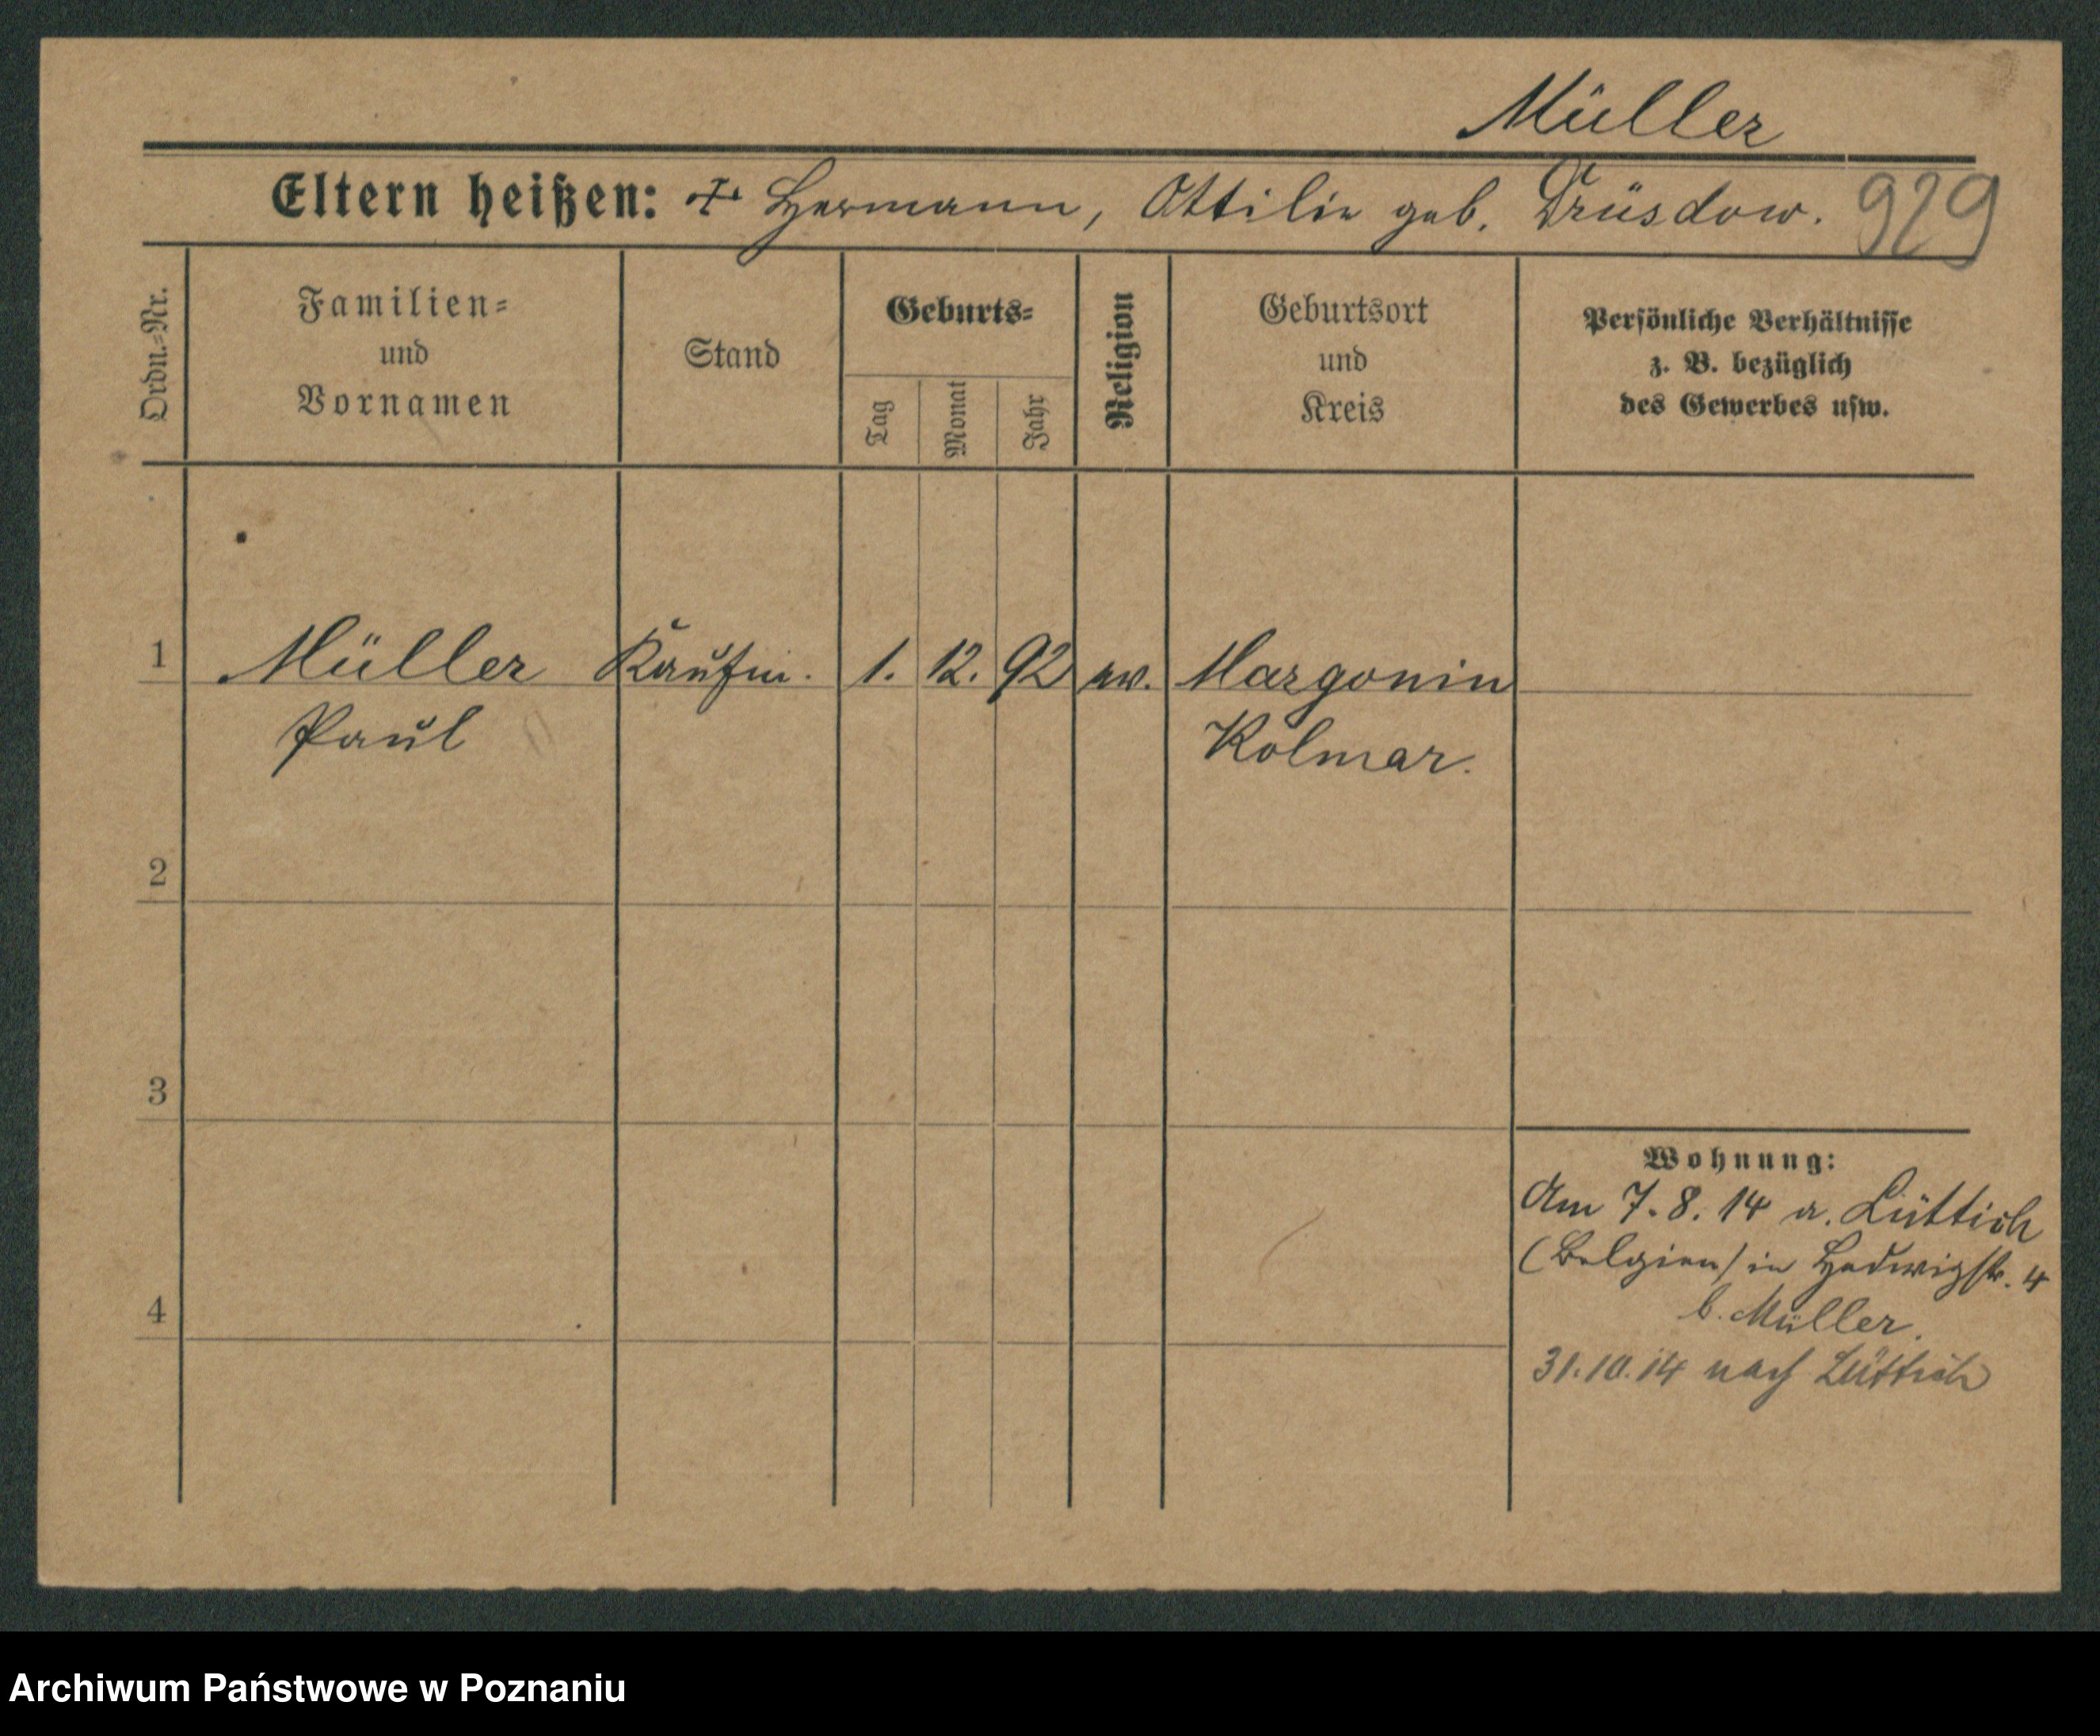 Müller
Eltern heißen: + Hermann, Ottilie geb. Drüsdow. 929
Ordn.-Nr.
Familien-
und
Vornamen
Stand
Geburts-
Tag
Monat
Jahr
Religion
Geburtsort
und
Kreis
Persönliche Verhältnisse
z. B. bezüglich
des Gewerbes usw.
1 Müller Kaufm. 1. 12. 92 ev. Margonin
Paul Kolmar.
2
3
Wohnung:
Am 7.8.14 a. Lüttich
(Belgien) in Hedwigstr. 4
4
b. Müller.
31.10.14 nach Lüttich
Archiwum Państwowe w Poznaniu